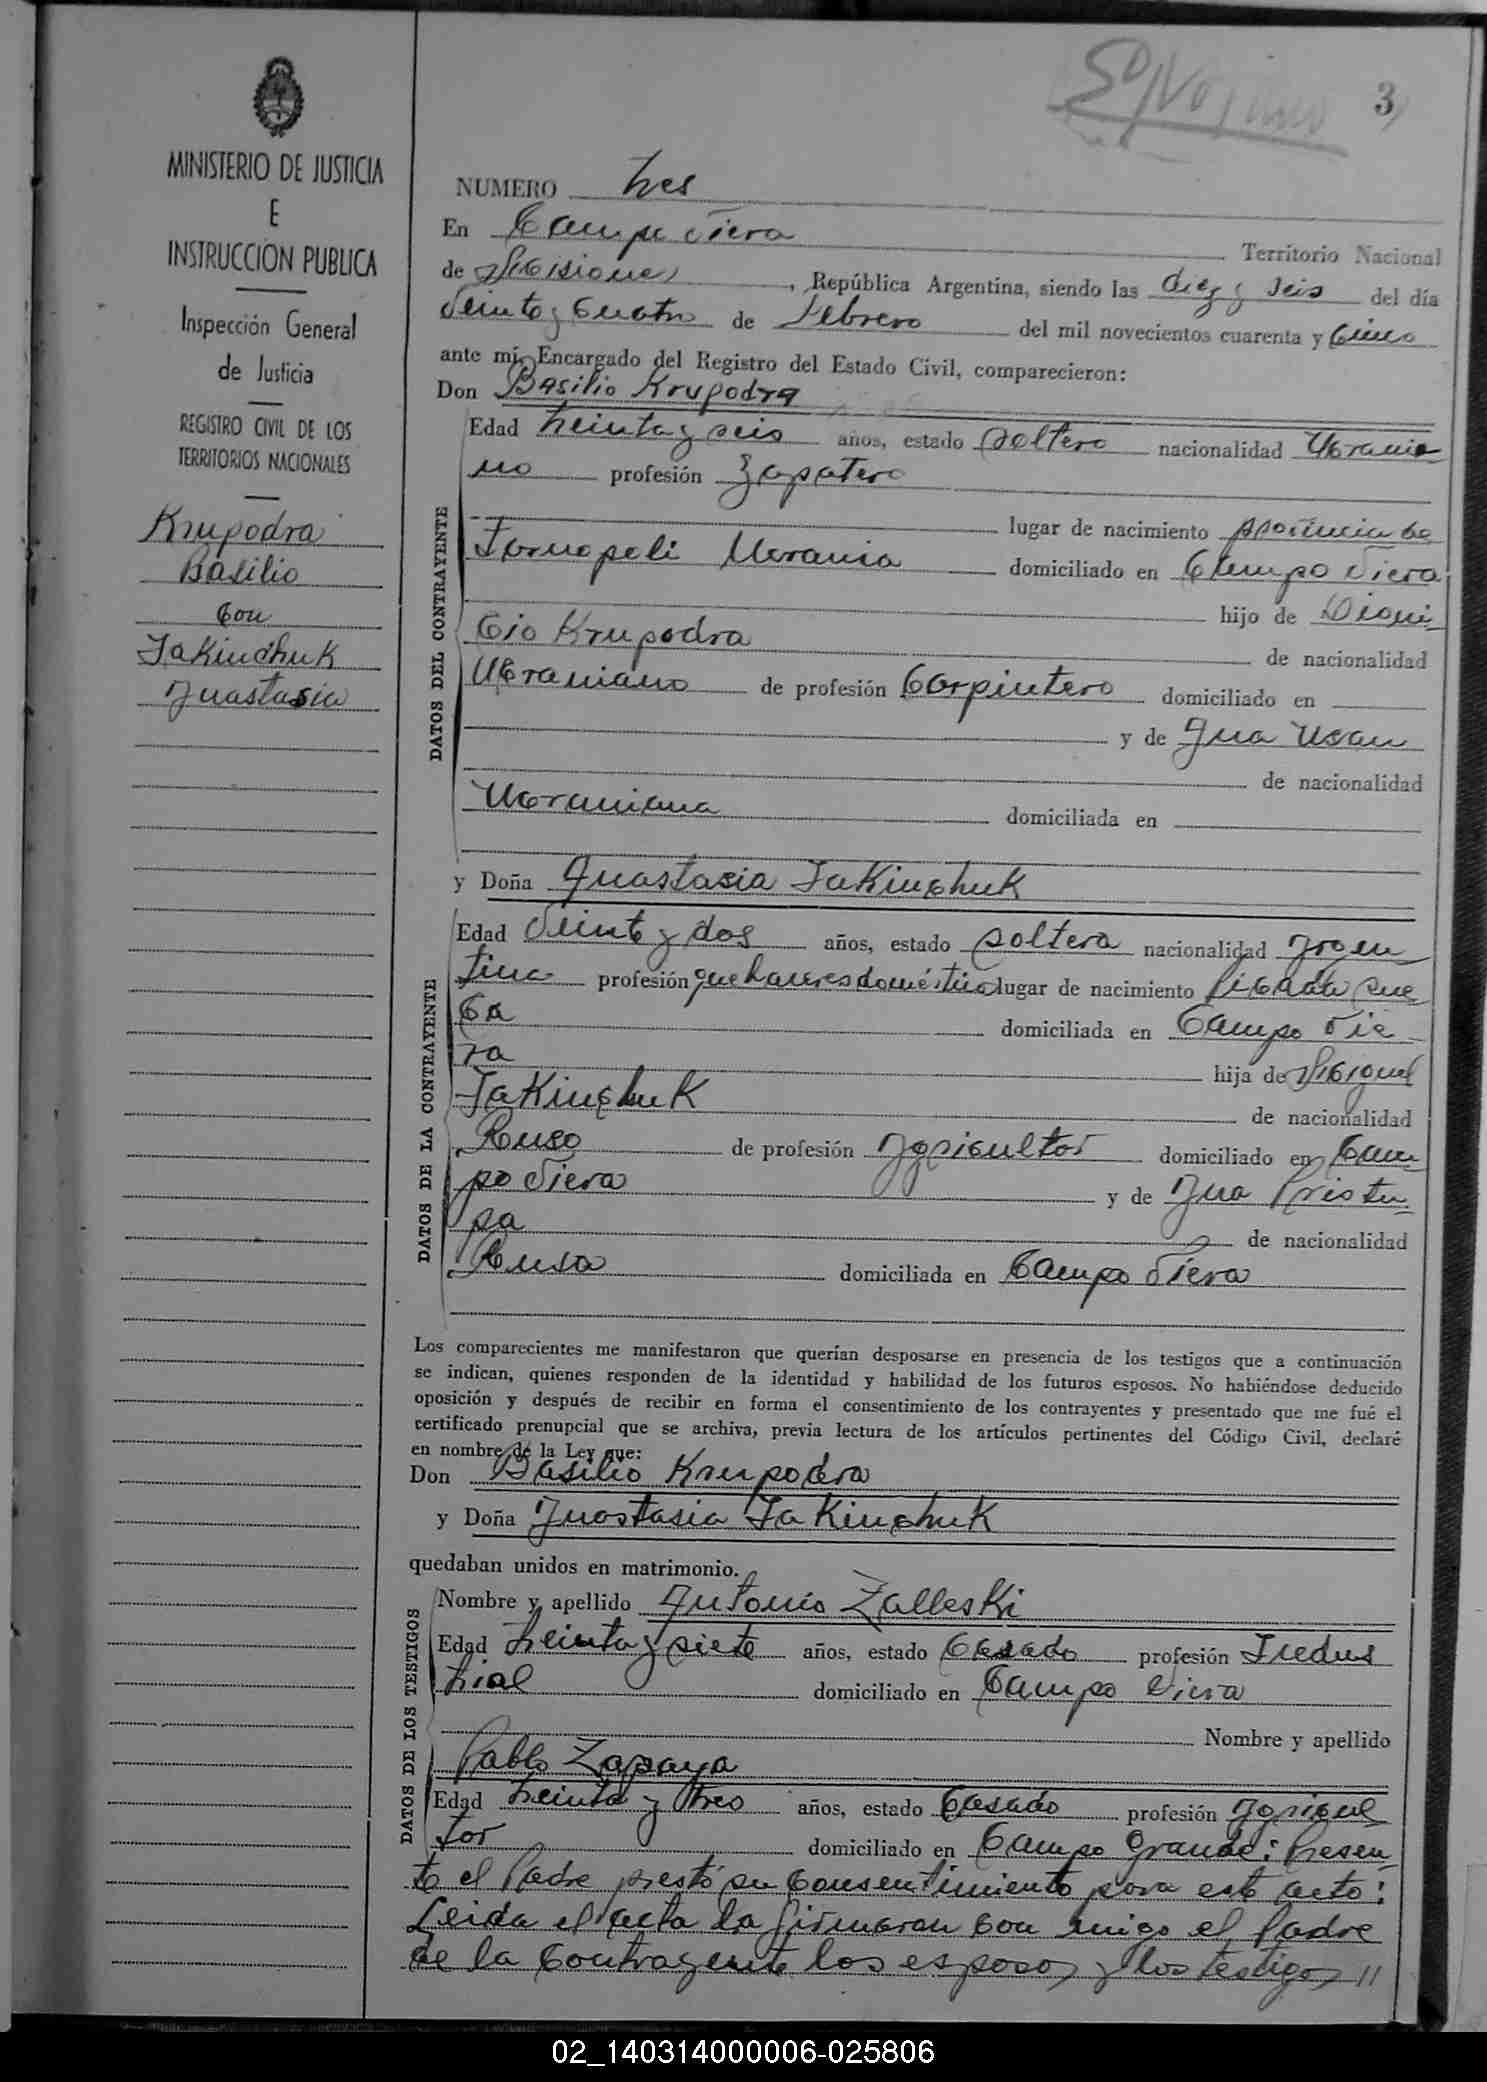 3
MINISTERIO DE JUSTICIA
E
INSTRUCCIÓN PUBLICA
Inspección General
de Justicia
REGISTRO CIVIL DE LOS
TERRITORIOS NACIONALES
Krupodra
Basilio
con
Jakinchuk
Anastasia
NUMERO tres
En Campo Viera
Territorio Nacional
de Misiones, República Argentina, siendo las diez y seis del día
veinte y cuatro de Febrero del mil novecientos cuarenta y cinco
ante mí, Encargado del Registro del Estado Civil, comparecieron:
Don Basilio Krupodra
DATOS DEL CONTRAYENTE
Edad treinta y seis años, estado soltero nacionalidad Ucrania
no profesión Zapatero
lugar de nacimiento provincia de
Tarnopoli Ucrania domiciliado en Campo Viera
hijo de Dioni
cio Krupodra de nacionalidad
Ucraniano de profesión Carpintero domiciliado en
y de Ana Usan
de nacionalidad
Ucraniana domiciliada en
y Doña Anastasia Jakinchuk
DATOS DE LA CONTRAYENTE
Edad veinte y dos años, estado soltera nacionalidad Argen
tina profesión quehaceres domésticos lugar de nacimiento Picada Sue
ca domiciliada en Campo Vie
ra hija de Miguel
Jakinchuk de nacionalidad
Ruso de profesión Agricultor domiciliado en Cam
po Viera y de Ana Pristu
pa de nacionalidad
Rusa domiciliada en Campo Viera
Los comparecientes me manifestaron que querían desposarse en presencia de los testigos que a continuación
se indican, quienes responden de la identidad y habilidad de los futuros esposos. No habiéndose deducido
oposición y después de recibir en forma el consentimiento de los contrayentes y presentado que me fué el
certificado prenupcial que se archiva, previa lectura de los artículos pertinentes del Código Civil, declaré
en nombre de la Ley que:
Don Basilio Krupodra
y Doña Anastasia Jakinchuk
quedaban unidos en matrimonio.
DATOS DE LOS TESTIGOS
Nombre y apellido Antonio Zalleski
Edad treinta y siete años, estado Casado profesión Indus
trial domiciliado en Campo Viera
Nombre y apellido
Pablo Zapaya
Edad treinta y tres años, estado Casado profesión Agricul
tor domiciliado en Campo Grande: Presen
te el Padre prestó su consentimiento para este acto:
Leida el acta la firmaron con migo el Padre
de la contrayente los esposos y los testigos //
02_140314000006-025806